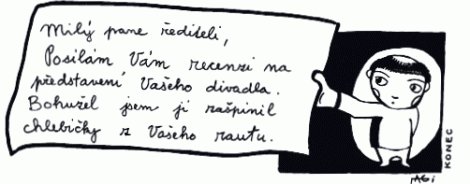 Milý pane řediteli,
Posílám Vám recenzi na
představení Vašeho divadla.
Bohužel jsem ji zašpinil
chlebíčky z Vašeho rautu.
KONEC